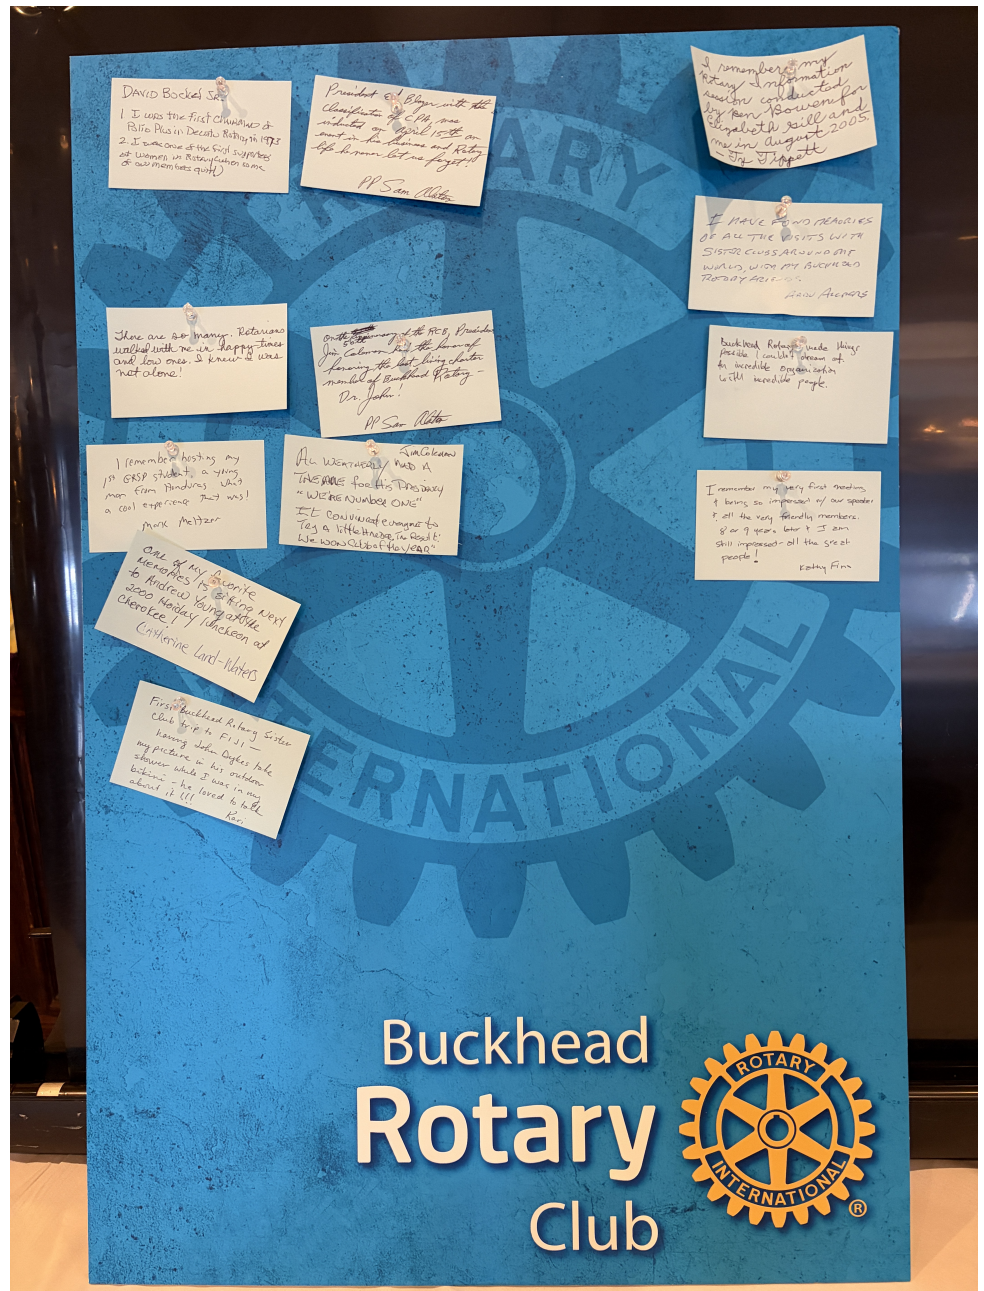 DAVID BOCKEL SR.
1. I WAS THE FIRST CHAIRMAN OF
Polio Plus in Decatur Rotary in 1973
2. I WAS ONE OF THE FIRST SUPPORTERS
OF WOMEN IN ROTARY (when some
of our members quit)
President Ed Bloger with the
Classification of CPA, was
inducted on April 15th an
event in his business and Rotary
life he never let us forget!
PP Sam
I remember my
Rotary Information
session conducted
by Ken Bowen for
Elizabeth Gill and
me in August 2005.
- Ty Tippett
I HAVE FOND MEMORIES
OF ALL THE VISITS WITH
SISTER CLUBS AROUND THE
WORLD, WITH MY BUCKHEAD
ROTARY FRIENDS.
There are so many. Rotarians
walked with me in happy times
and low ones. I knew I was
not alone!
On the 50th anniversary of the RCB, President
Jim Coleman had the honor of
honoring the last living charter
member of Buckhead Rotary -
Dr. John!
PP Sam
Buckhead Rotary made things
possible I couldn't dream of
An incredible organization
with incredible people.
I remember hosting my
1st GRSP student, a young
man from Honduras what
a cool experience that was!
Mark Meltzer
Jim Coleman
AL WEATHERLY HAD A
THEME for His PRESIDENCY
"WE'RE NUMBER ONE"
IT convinced everyone to
Try A little Harder, in Result:
We won Club of the YEAR"
I remember my very first meeting
& being so impressed w/ our speaker
& all the very friendly members.
8 or 9 years later & I am
still impressed - all the great
people!
Kathy Finn
One of my favorite
Memories is sitting Next
to Andrew Young at the
2000 Holiday luncheon at
Cherokee!
Catherine Land-Waters
First Buckhead Rotary Sister
Club trip to FIJI -
having John Dykes take
my picture in his outdoor
shower while I was in my
bikini - he loved to talk
about it!!!
Kari
ROTARY
INTERNATIONAL
Buckhead
Rotary
Club
ROTARY
INTERNATIONAL
®